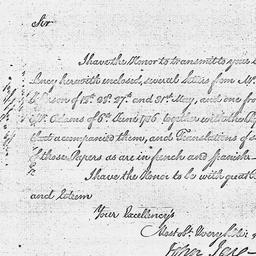 Sir
I have the Honor to transmit to your
lency herewith enclosed, several Letters from Mr.
of 12th. 25. 27th. and 31st. May, and one fro
Mr. Adams of 6th. June 1786, together with the Pap
that accompanied them, and Translations of s
of those Papers as are in french and spanish—
I have the Honor to be with great
and Esteem
Your Excellency's
Most Obt. & very hble
John Jay